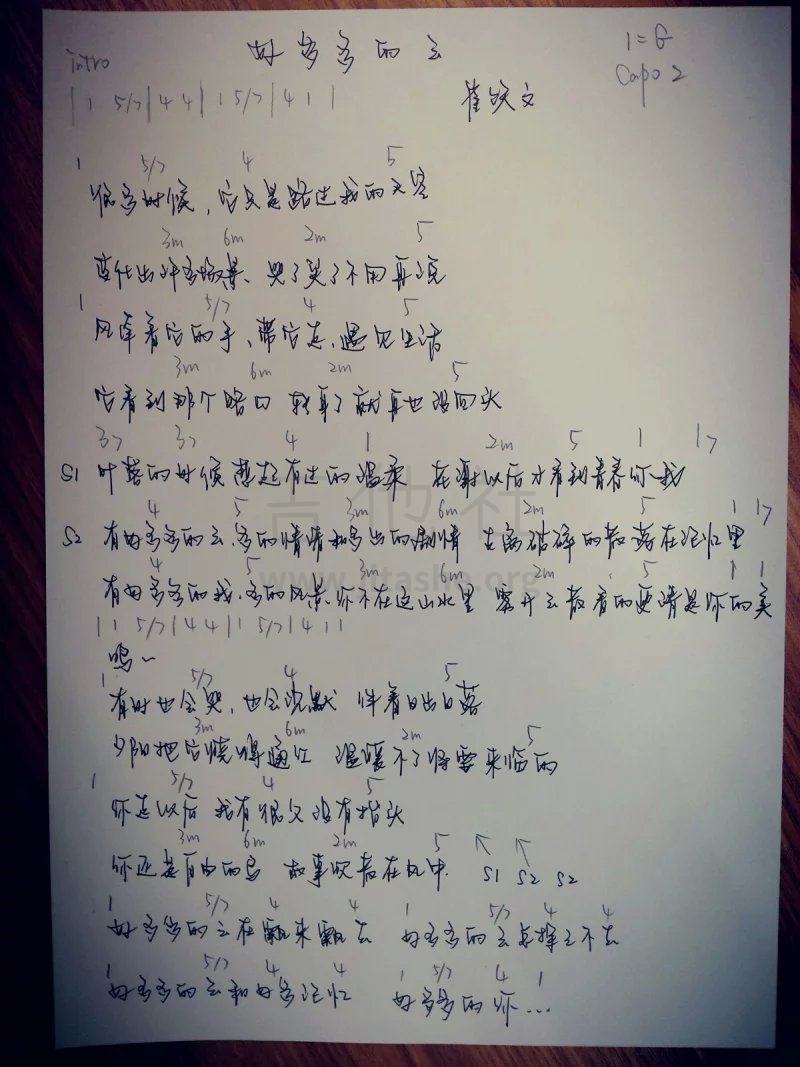 好多多的云
1=G
intro
Capo 2
| 1 5/7 | 4 4 | 1 5/7 | 4 1 |
崔跃文
1 5/7 4 5
很多时候，它只是路过我的天空
3m 6m 2m 5
变化出许多场景、哭了笑了不用再说
1 5/7 4 5
风牵着它的手、带它走、遇见生活
3m 6m 2m 5
它看到那个路口 转身了就再也没回头
37 37 4 1 2m 5 1 17
S1 叶落的时候想起有过的温柔 花谢以后才看到青春你我
4 5 3m 6m 2m 5 1 17
S2 有好多多的云、多的情绪和多出的剧情 支离破碎的散落在记忆里
4 5 3m 6m 2m 5 1 1
有好多多的我、多的风景、你不在这山水里 雾开云散看的更清是你的美
| 1 5/7 | 4 4 | 1 5/7 | 4 1 1
呜~
1 5/7 4 5
有时也会哭，也会沉默 伴着日出日落
3m 6m 2m 5
夕阳把它烧得通红 温暖不了将要来临的
1 5/7 4 5
你走以后 我有很久没有抬头
3m 6m 2m 5
你还是自由的鸟 故事吹散在风中 S1 S2 S2
1 5/7 4 4 1 5/7 4 4
好多多的云在飘来飘去 好多多的云总挥之不去
1 5/7 4 4 1 5/7 4 1
好多多的云和好多记忆 好多多的你...
吉他社
www.jitashe.org